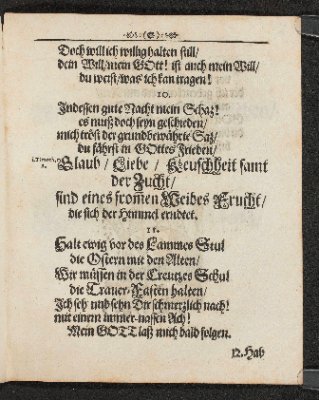 Doch will ich willig halten still/
dein Will/mein GOtt! ist auch mein Will/
du weist/was ich kan tragen!
10.
Indeßen gute Nacht mein Schaz!
es muß doch seyn geschieden/
mich tröst der grundbewährte Saz/
du fährst in GOttes Frieden/
Glaub / Liebe / Keuschheit samt
der Zucht/
sind eines fromen Weibes Frucht/
die sich der Himmel erndtet.
11.
Halt ewig vor des Lammes Stul
die Ostern mit den Alten/
Wir müssen in der Creutzes Schul
die Trauer-Fasten halten/
Ich seh und sehn Dir schmerzlich nach!
mit einem immer-nassen Ach!
Mein GOTT laß mich bald folgen.
12. Hab